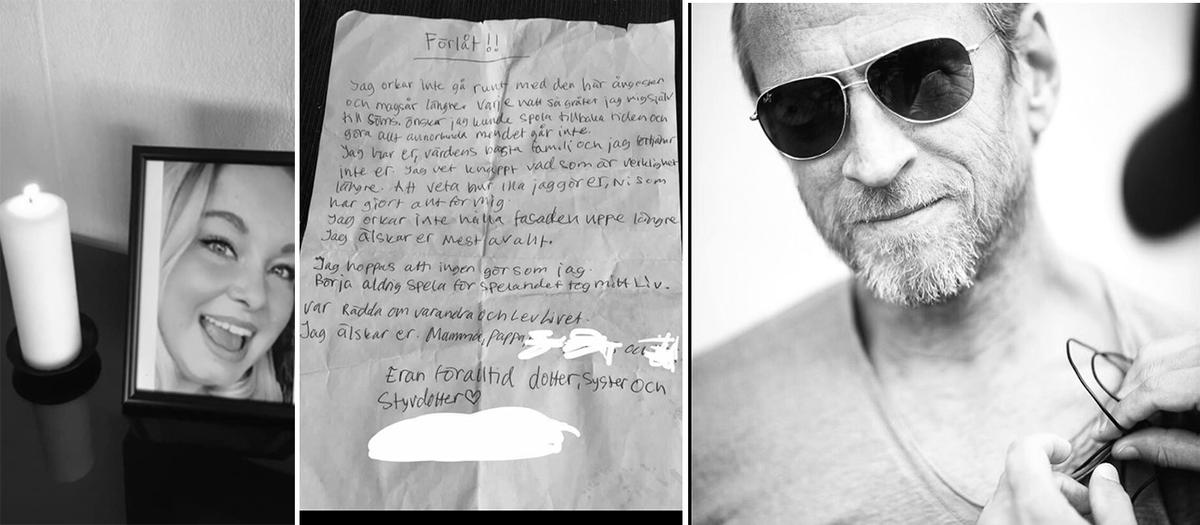 Förlåt!!
Jag orkar inte gå runt med den här ångesten
och magsår längre. Varje natt så gråter jag mig själv
till sömns. önskar jag kunde spola tillbaka tiden och
göra allt annorlunda men det går inte.
Jag har er, världens bästa familj och jag förtjänar
inte er. Jag vet knappt vad som är verklighet
längre. Att veta hur illa jag gör er, ni som
har gjort allt för mig.
Jag orkar inte hålla fasaden uppe längre
Jag älskar er mest av allt.
Jag hoppas att ingen gör som jag.
Börja aldrig spela för spelandet tog mitt Liv.
var Rädda om varandra och Lev Livet.
Jag älskar er. Mamma, pappa, och
Eran föralltid dotter, Syster och
Styvdotter♡